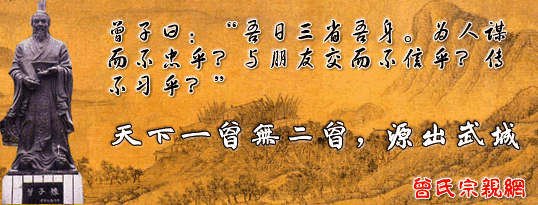 曾子曰：“吾日三省吾身。为人谋
而不忠乎？与朋友交而不信乎？传
不习乎？”
天下一曾無二曾，源出武城
曾氏宗親網
曾子像